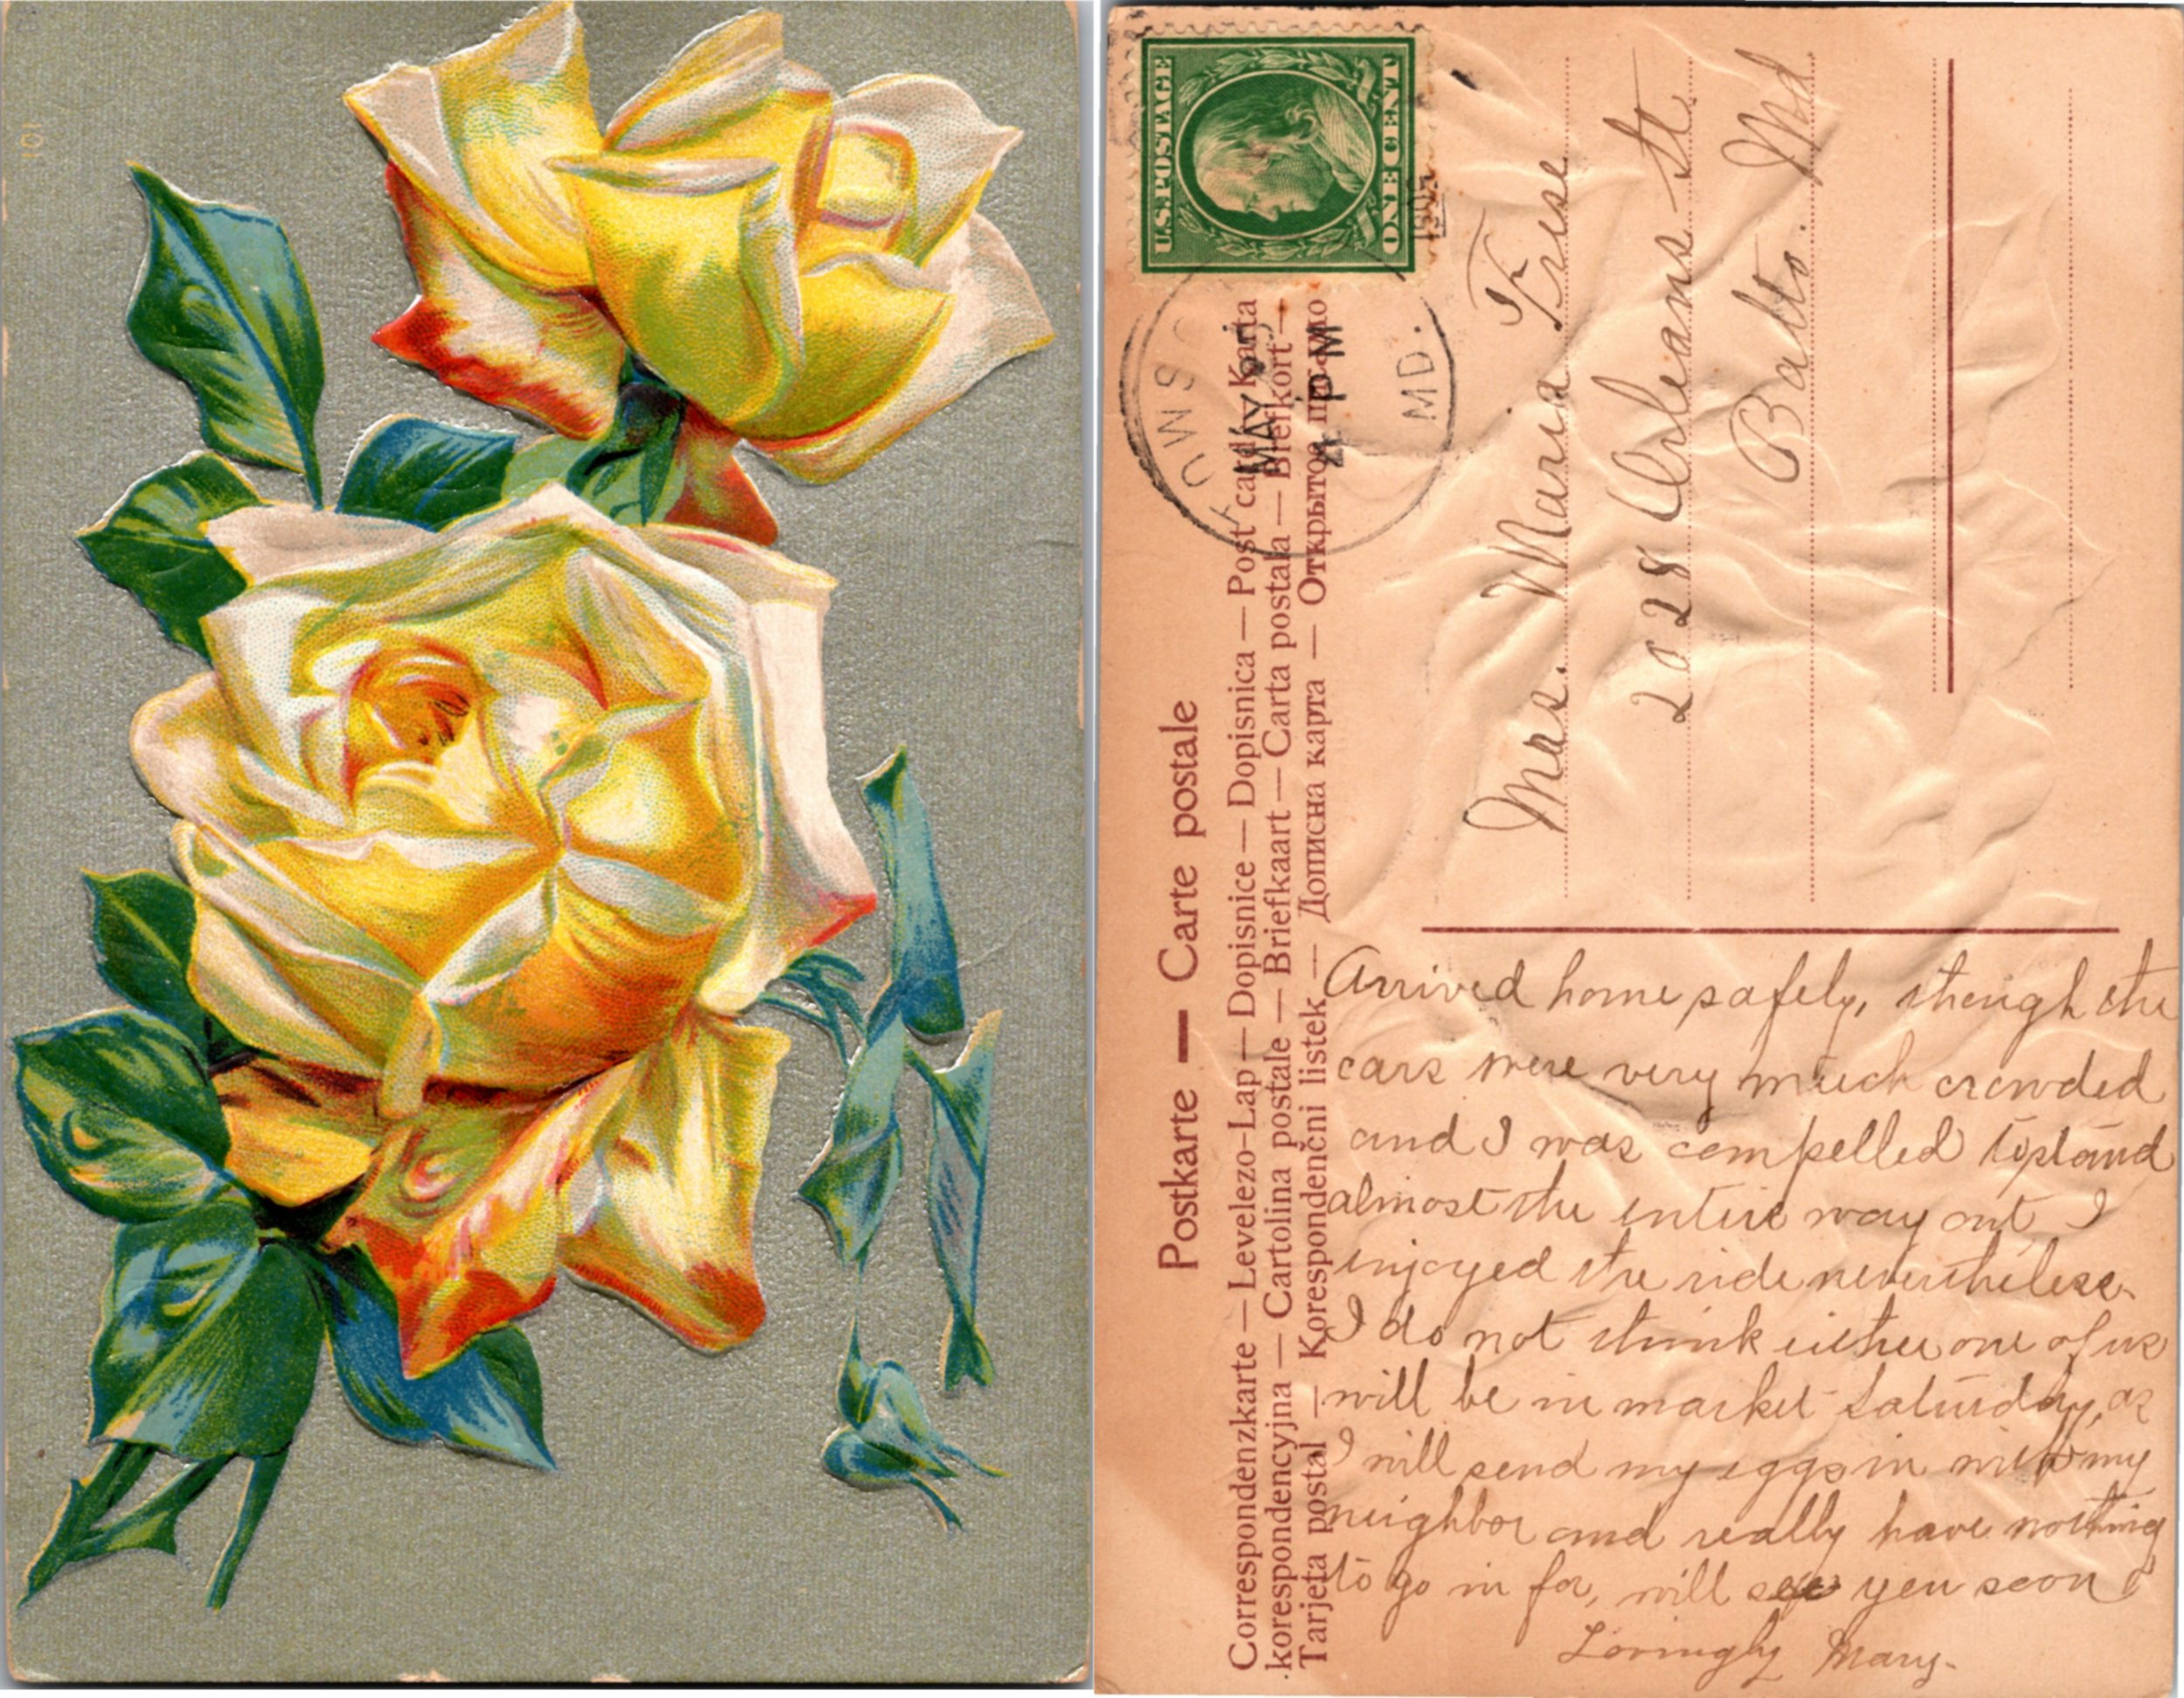 101
U.S. POSTAGE
ONE CENT
TOWSO
MAY 5
4 PM
MD.
Postkarte — Carte postale
Correspondenzkarte — Levelezo-Lap — Dopisnice — Dopisnica — Post card — Karta
korespondencyjna — Cartolina postale — Briefkaart — Carta postala — Brefkort —
Tarjeta postal — Korespondenční listek — Дописна карта — Открытое письмо
Mrs. Maria I Frise
2028 Orleans St.
Balto. Md
Arrived home safely, though the
cars were very much crowded
and I was compelled to stand
almost the entire way out, I
enjoyed the ride nevertheless.
I do not think either one of us
will be in market Saturday, as
I will send my eggs in with my
neighbor and really have nothing
to go in for, will see you soon
Lovingly Mary.